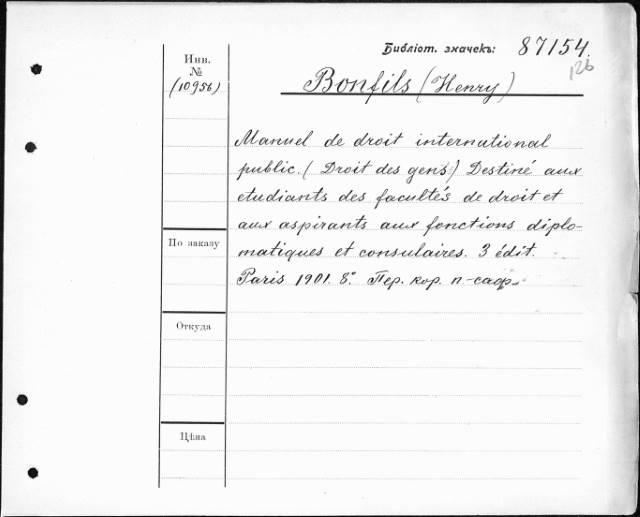 Библіот. значекъ: 87154.
126
Инв.
№
(10956)
Bonfils (Henry)
Manuel de droit international
public. (Droit des gens) Destiné aux
etudiants des facultés de droit et
aux aspirants aux fonctions diplo-
matiques et consulaires. 3 édit.
Paris 1901. 8°. Пер. кор. п-саф.
По заказу
Откуда
Цѣна